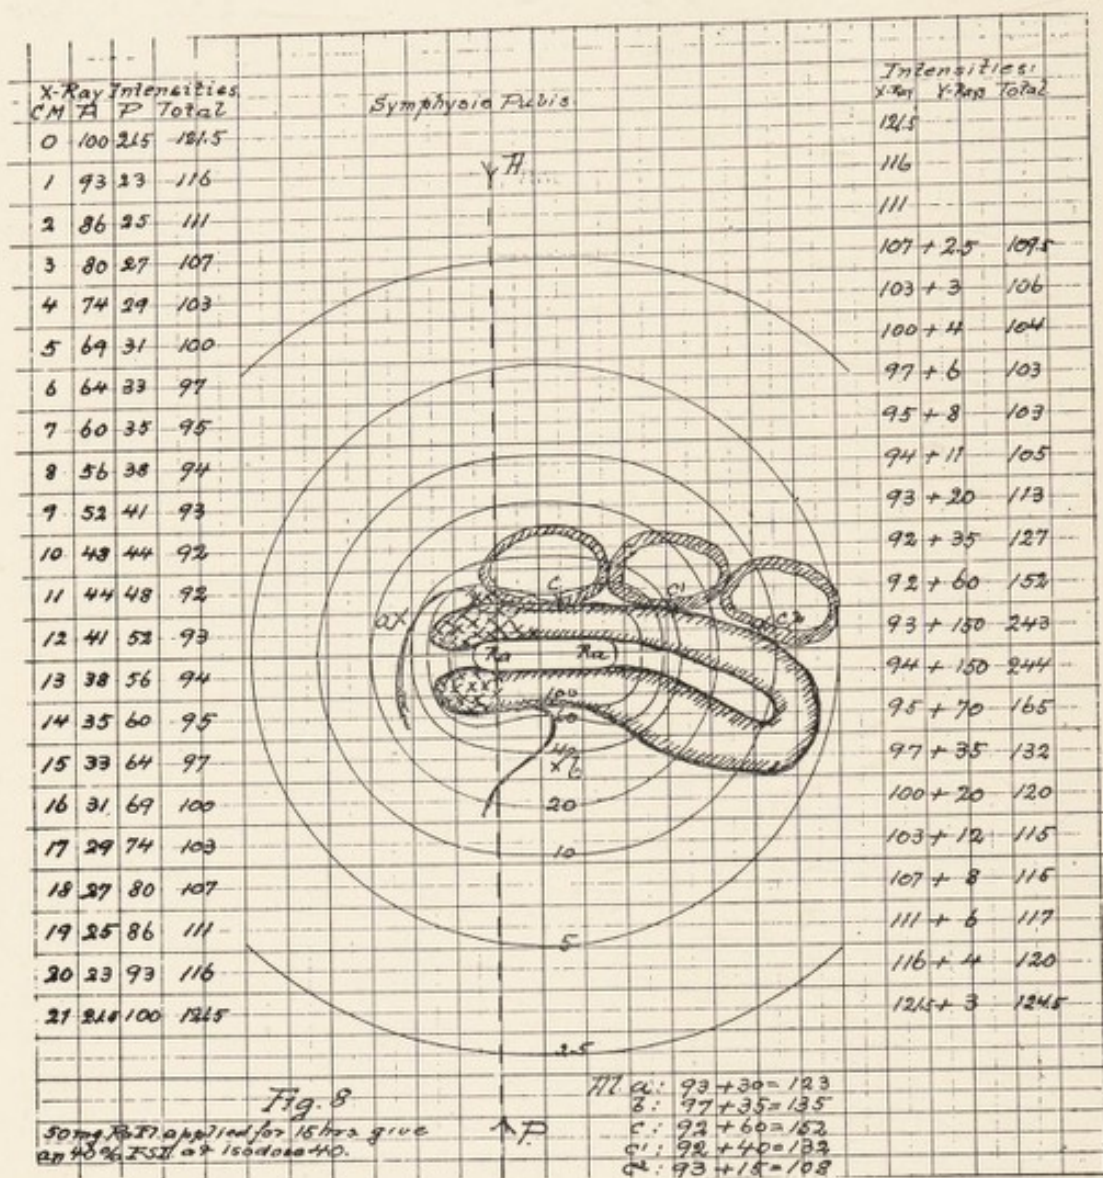 X-Ray Intensities
CM A P Total
0 100 21.5 121.5
1 93 23 116
2 86 25 111
3 80 27 107
4 74 29 103
5 69 31 100
6 64 33 97
7 60 35 95
8 56 38 94
9 52 41 93
10 48 44 92
11 44 48 92
12 41 52 93
13 38 56 94
14 35 60 95
15 33 64 97
16 31 69 100
17 29 74 103
18 27 80 107
19 25 86 111
20 23 93 116
21 21.5 100 121.5
Symphysis Pubis
A
Intensities:
X-Ray γ-Rays Total
121.5
116
111
107 + 2.5 109.5
103 + 3 106
100 + 4 104
97 + 6 103
95 + 8 103
94 + 11 105
93 + 20 113
92 + 35 127
92 + 60 152
93 + 150 243
94 + 150 244
95 + 70 165
97 + 35 132
100 + 20 120
103 + 12 115
107 + 8 115
111 + 6 117
116 + 4 120
121.5 + 3 124.5
C C' C²
aX
Ra Ra
100
60
40
xb
20
10
5
2.5
Fig. 8
50mg applied for 15 hrs give
an 40% at isodose 40.
P
At a: 93 + 30 = 123
b: 97 + 35 = 135
c: 92 + 60 = 152
c': 92 + 40 = 132
c²: 93 + 15 = 108